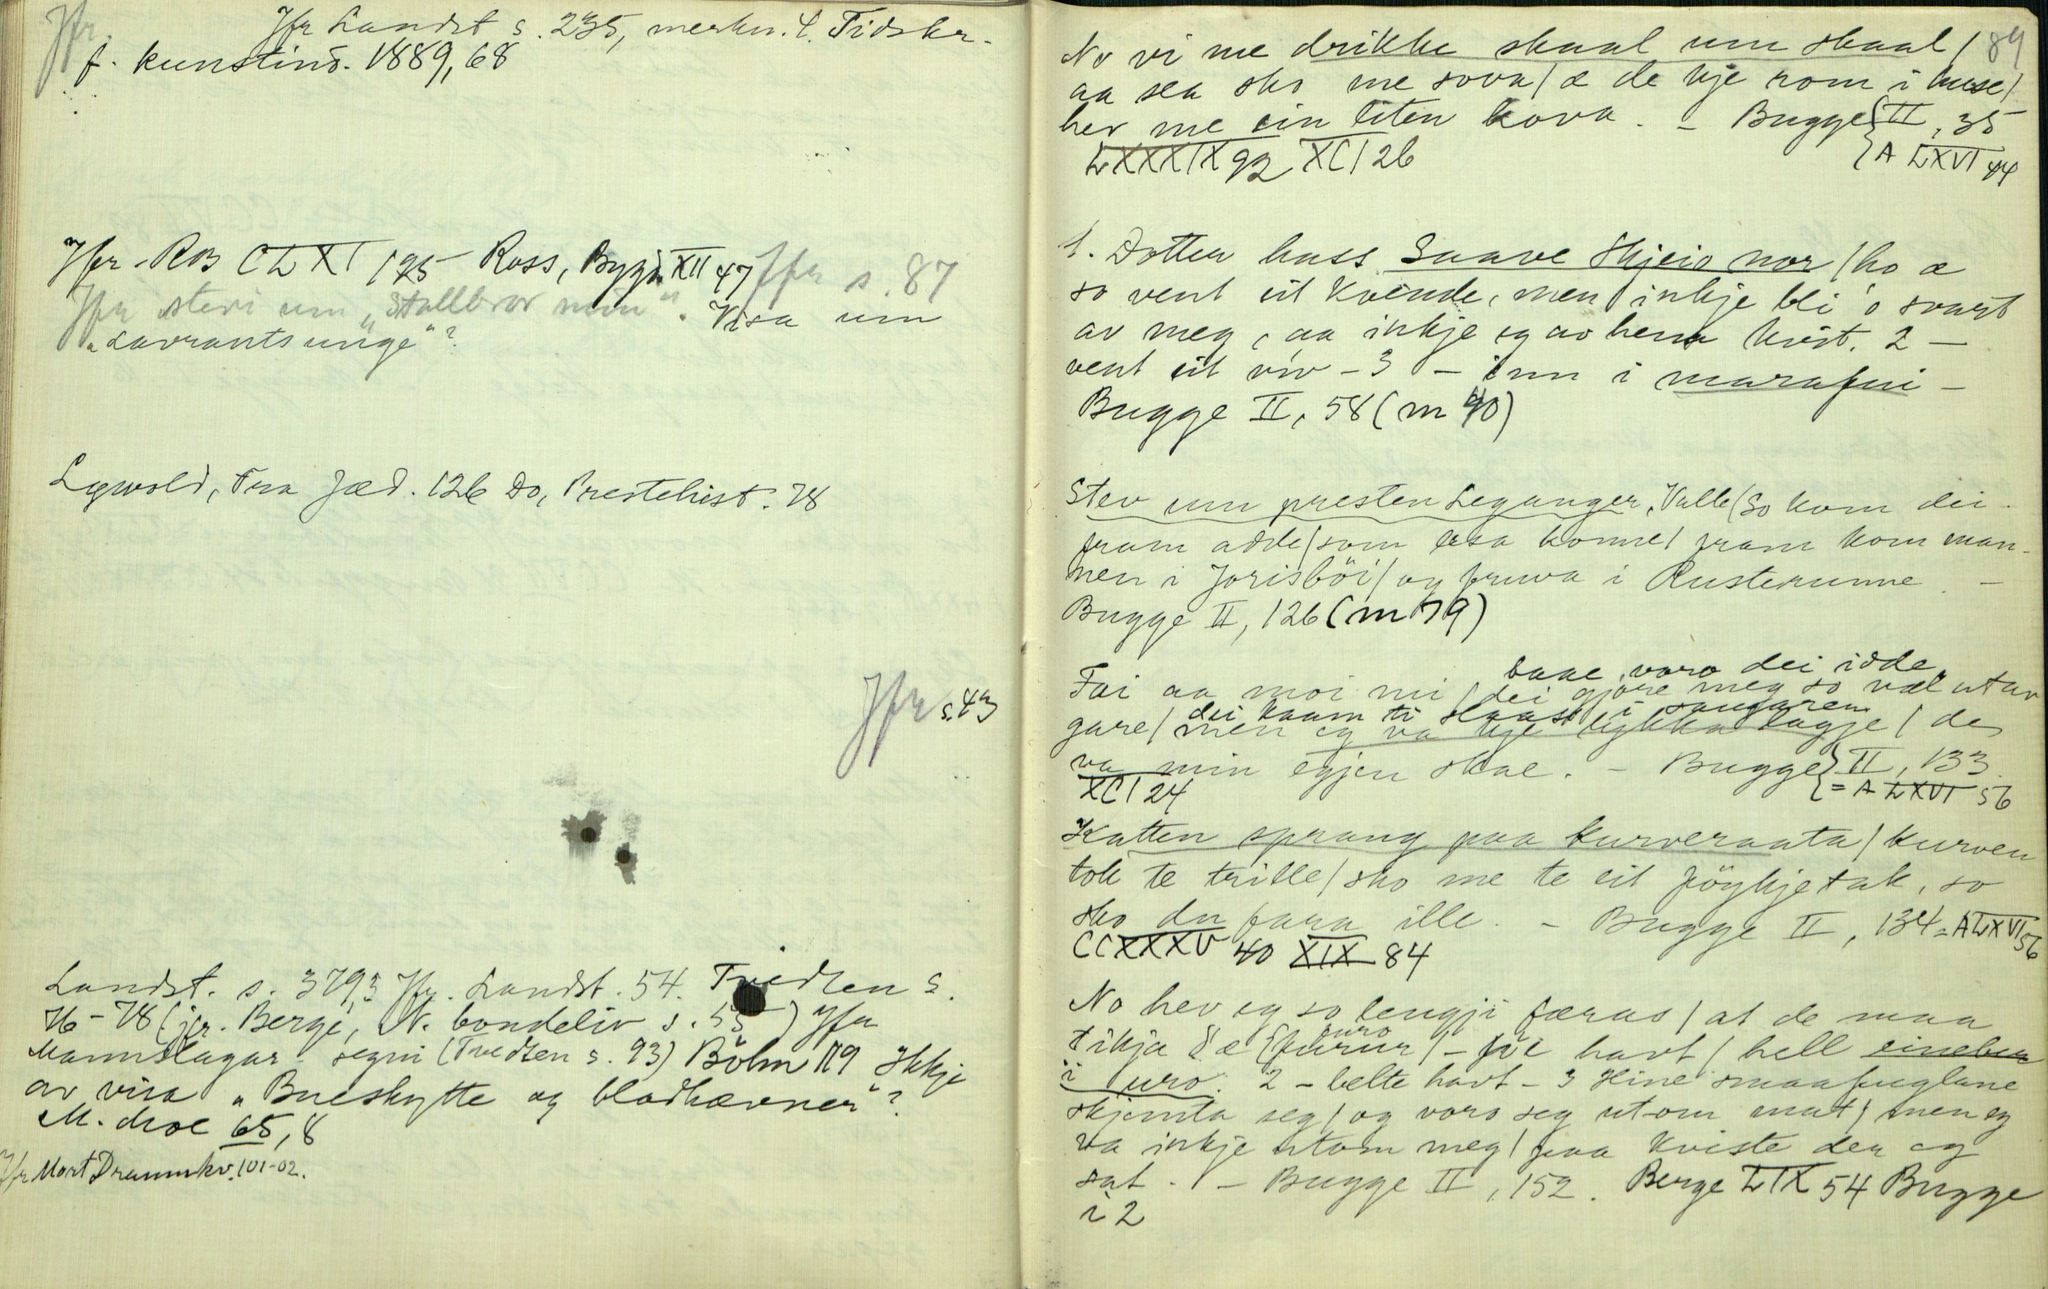 Jfr.
Jfr Landst s. 235, merkn. 4. Tidskr.
f. kunstind. 1889, 68
Jfr. ROB CLXI 195 Ross, Bygd. XII 47 Jfr s. 87
Jfr stevi um "Stallbror min". Visa um
"Lavrants unge"?
Lywold, Fra Jæd. 126 Do, Prestehist. 78
Jfr s. 43
Landst. s. 379,3 Jfr. Landst. 54. Tvedten s.
76-78 (jfr. Berge, N. bondeliv s. 55) Jfr
Mannslagar segni (Tvedten s. 93) Bölm 179 Ikkje
av visa "Bueskytte og blodhævner"?
M. Moe 65, 8
Jfr Mort Draumkv. 101-02.
89
No vi me drikke skaal um skaal/
aa sea sko me sova/ æ de kje rom i huse/
hev me ein liten kova. - Bugge { II, 35
LXXXIX 92 XCI 26 { A LXVI 44
1. Dotter hass Saave Skjeio nor/ ho æ
so vent eit kvende, men inkje bli 'o svart
av meg, aa inkje eg av henn kvit. 2 -
vent eit viv - 3 - inn i marafui -
Bugge II, 58 (m 40)
Stev um presten Leganger, Valle/ So kom dei
fram adde/ som lesa konne/ fram kom man-
nen i Jorisböi/ og fruva i Rusterunne -
Bugge II, 126 (m 79)
baae voro dei idde
Fai aa moi mi/ dei gjore meg so væl utav
dei kaam ti slaast i sengaren
gare/ men eg va kje lykka lagje/ de
va min egjen skae. - Bugge } II, 133
XCI 24 { = A LXVI 56
Katten sprang paa kurveraata/ kurven
tok te trille/ sko me te eit föykjetak, so
sko du fara ille. - Bugge II, 134 = A LXVI 56
CCXXXV 40 XIX 84
No hev eg so lengji færas/ at de maa
furo
tikja Se { furur/ - hart/ hell
i uro. 2 - belte hart - 3 Hine smaafuglane
skjemta seg/ og voro seg utom mat/ men eg
va inkje utom meg/ paa kviste der eg
sat. - Bugge II, 152. Berge LIX 54 Bugge
i 2